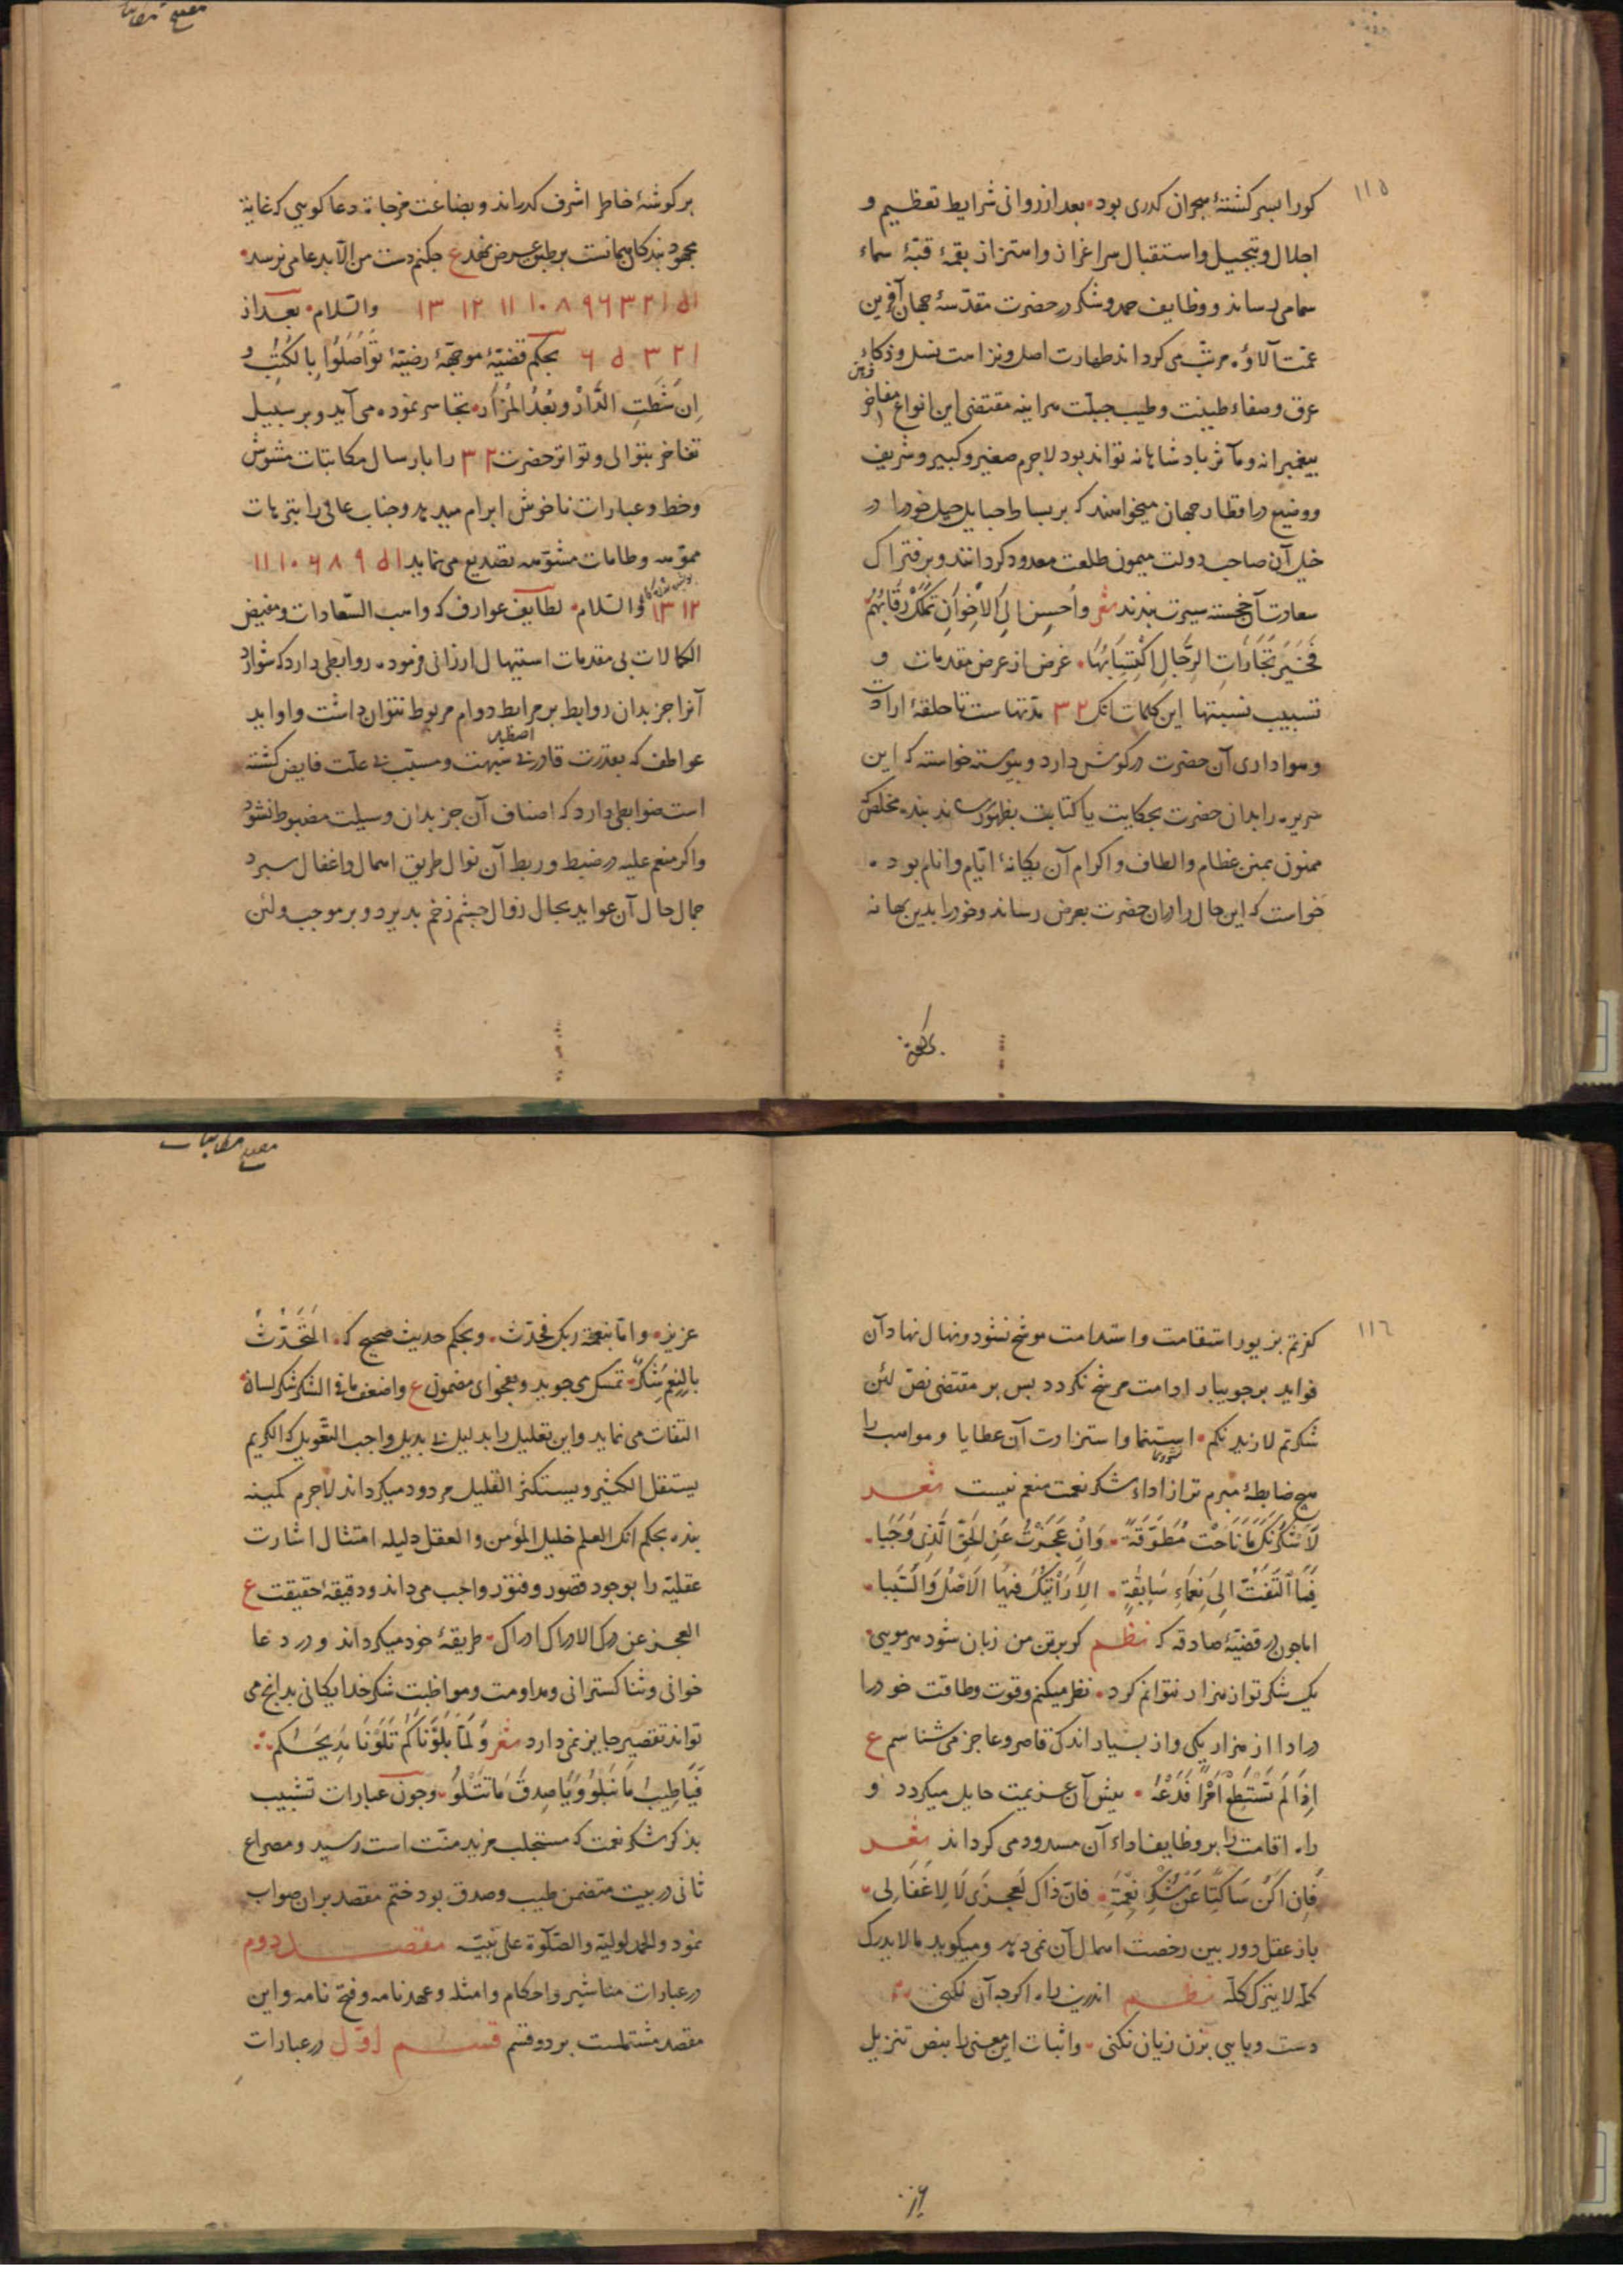 ١١٥
کورا بسر کشتهٔ هجران کذری بود بعد از روانی شرایط تعظیم و
اجلال و تبجیل و استقبال سراعزاز و استزاز بقهٔ قبّهٔ سماء
سمامی رساند و وظایف حمد و شکر در حضرت مقدّسهٔ جهان آفرین
عمّت آلاؤه مرتّب می کرداند طهارت اصل و نزاهت نسل و ذکاء
عرق و صفاء طینت و طیب جبلّت هراینه مقتضی این انواع مفاخر
پیغمبرانه و مآثر پادشاهانه تواند بود لاجرم صغیر و کبیر و شریف
و وضیع در اقطار جهان میخواهند که بر بساط حبایل حیل خود را در
خیل آن صاحب دولت میمون طلعت معدود کردانند و بر فتراک
سعادت آن خجسته سیرت بندند شعر واُحسِن اِلَی الاَخوانِ تَملک رِقابَهُم
فَخَیرُ تَجاراتِ الرّجالِ اکتِسابُها غرض از عرض مقدمات و
تسبیب نسبتها این کلمات آنک ٣٢ مدّتهاست تا حلقهٔ ارادت
و هواداری آن حضرت در کوش دارد و پیوسته خواسته که این
ضریره را بدان حضرت بحکایت یا کتابت بظهور رساند بنده مخلص که
ممنون بمنن عظام و الطاف و اکرام آن یکانهٔ ایّام و انام بود
خواست که این حال را دران حضرت بعرض رساند و خود را بدین بهانه
بر کوشهٔ خاطر اشرف کذراند و بضاعت مزجاة دعا کویی که غایة
مجهود بندکان همانست بر طبق عرض نهد ع چکنم دست من الّا بدعا می نرسد
١٥ ٢١ ٣ ٦ ٩ ٨ ١٠ ١١ ١٢ ١٣ والسّلام بعد از
١ ٢ ٣ ٥ ٦ بحکم قضیّهٔ موجّهٔ رضیّهٔ تَوَاصَلُوا بِالکُتُبِ و
اِن شَطَتِ الدّارُ و بَعُدُ المَزار تجاسر نموده می آید و بر سبیل
تفاخر بتوالی و تواتر حضرت ٣٢ را بارسال مکاتبات مشوش
و خط و عبارات ناخوش ابرام میدهد و جناب عالی را بترهات
مموّهه و طامات مشوّهه تصدیع می نماید ١٥ ٩ ٨ ٦ ١٠ ١١
١٢ ١٣ والسّلام لطایف عوارف که واهب السّعادات و مفیض
الکمالات بی مقدمات استیهال ارزانی فرموده روابطی دارد که شوارد
آنرا جز بدان روابط بر مرابط دوام مربوط نتوان داشت و اوابد
عواطف که بقدرت قادر بی شبهت و مسبّب بی علّت فایض کشته
است ضوابطی دارد که اصناف آن جز بدان وسیلت مضبوط نشود
و اکر منعم علیه در ضبط و ربط آن نوال طریق اهمال و اغفال سپرد
جمال حال آن عواید بجال زوال چشم زخم پذیرد و بر موجب ولئن
١١٦
کفرتم بزیور استقامت و استدامت موشح نشود و نهال نهاد آن
فواید بر جویبار ادامت مرشّح نکردد پس بر مقتضی نصّ لئن
شکرتم لازیدنکم استنما و استزادت آن عطایا و مواهب را
هیچ ضابطهٔ مبرم تر از اداء شکر نعمت منعم نیست شعر
لَاَشکُرنَّکَ مَا نَاحَت مُطَوَّقَةٌ وَاِن عَجَزتُ عَنِ الحَقِّ الَّذِی وَجَبَا
فَمَا اَلتَفَتُّ اِلی نَعمَاءِ سَابِقَةٍ اِلّا رَاَیتُکَ فِیهَا الاَصلَ وَالسَّبَبا
اما چون در قضیّهٔ صادقه که نظم کر بر تن من زبان شود هر مویی
یک شکر تو از هزار نتوانم کرد نظر میکنم و قوت و طاقت خود را
در ادا از هزار یکی و از بسیار اندک قاصر و عاجز می شناسم ع
اِذَا لَم تَستَطِع اَمرًا فَدَعهُ پیش آن عزیمت حایل میکردد و
راه اقامت را بر وظایف اداء آن مسدود می کرداند شعر
فَاِن اَکُن سَاکِتًا عَن شُکرِ نِعمَتِهِ فَاِنَّ ذاکَ لِعَجزی لَا لِاِغفَالِی
باز عقل دور بین رخصت اهمال آن نمی دهد و میکوید مالا یدرک
کلّه لا یترک کلّه نظم اندرین راه اکرچه آن نکنی
دست و پایی بزن زیان نکنی و اثبات این معنی را بنص تنزیل
عزیز واما بنعمة ربک فحدّث و بحکم حدیث صحیح که التَّحَدُّثُ
بِالنِّعَمِ شُکرٌ تمسک می جوید و بفحوای مضمون ع واضعف ما فی الشکر شکر لسانه
التفات می نماید و این تعلیل را بدلیل بی بدیل واجب التّعویل که الکریم
یستقل الکثیر و یستکثر القلیل مردود میکرداند لاجرم کمینه
بنده بحکم آنک العلم خلیل المؤمن و العقل دلیله امتثال اشارت
عقلیّه را بوجود قصور و فتور واجب می داند و دقیقهٔ حقیقت ع
العجز عن درک الادراک ادراک طریقهٔ خود میکرداند و در دعا
خوانی و ثنا کسترانی و مداومت و مواظبت شکر خدایکانی بدانچ می
تواند تقصیر جایز نمی دارد شعر وَلَمّا بَلَونَاکُم تَلَونَا مَدِیحَکُم
فَیَا طِیبَ مَا نَبلُو وَیَا صِدقَ مَا نَتلُو و چون عبارات تشبیب
بذکر شکر نعمت که مستجلب مزید منّت است رسید و مصراع
ثانی در بیت متضمن طیب و صدق بود ختم مقصد بران صواب
نمود والحمد لولیّه والصّلوة علی نبیّه مقصد دوم
در عبارات مناشیر و احکام و امثله و عهدنامه و فتح نامه و این
مقصد مشتملست بر دو قسم قسم اوّل در عبارات